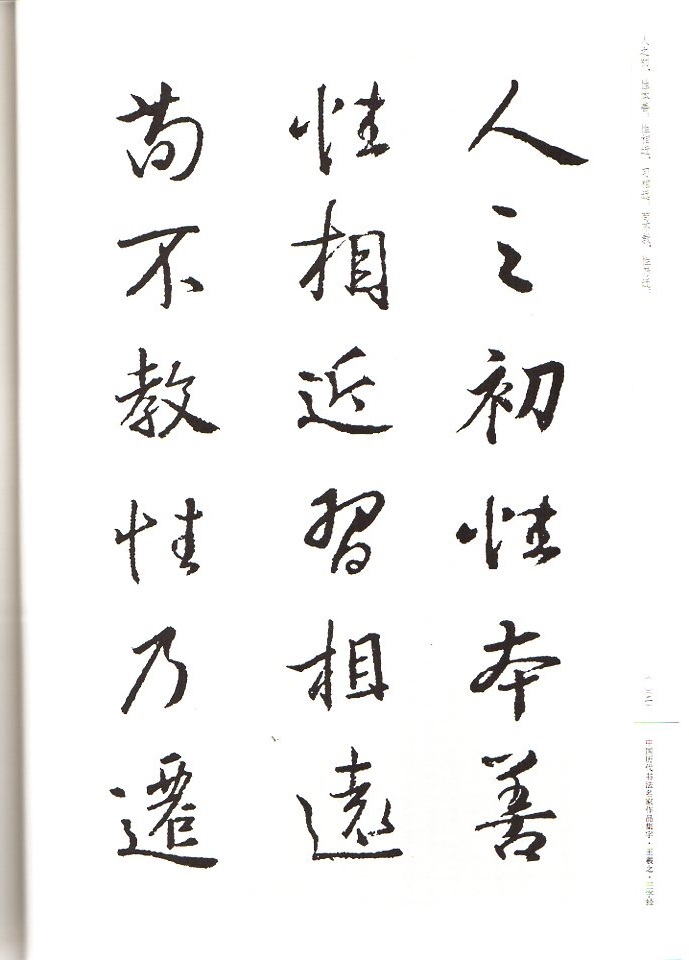 人之初，性本善。性相近，习相远。苟不教，性乃迁。
中国历代书法名家作品集字·王羲之·三字经
人之初性本善
性相近習相遠
苟不教性乃遷